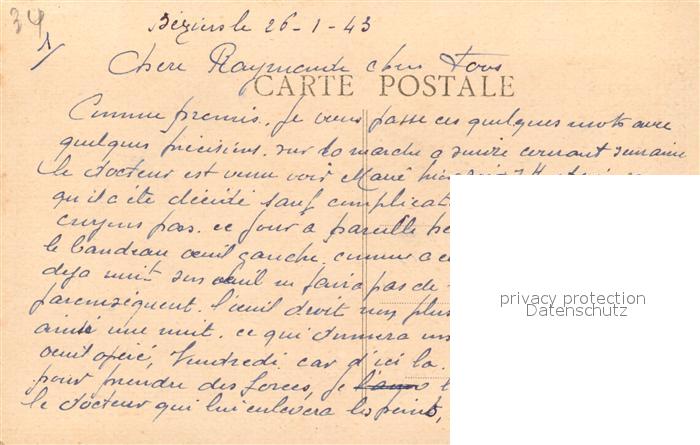 34
Béziers le 26-1-43
Chere Raymonde chers Tous
CARTE POSTALE
Comme promis. Je vous passe ces quelques mots avec
quelques précisions. sur la marche a suivre courant semaine
le docteur est venu voir
qu'il a été décidé sauf complicat
croyons pas. ce jour a pareille he
le bandeau oeuil gauche. comme a
deja nuit son oeuil ne faira pas de
parconséquent. l'oeuil droit non plus
ainsi une nuit. ce qui donnera un
oeuil opéré, Vendredi car d'ici la.
pour prendre des forces, je
le docteur qui lui enlevera les points,
privacy protection
Datenschutz